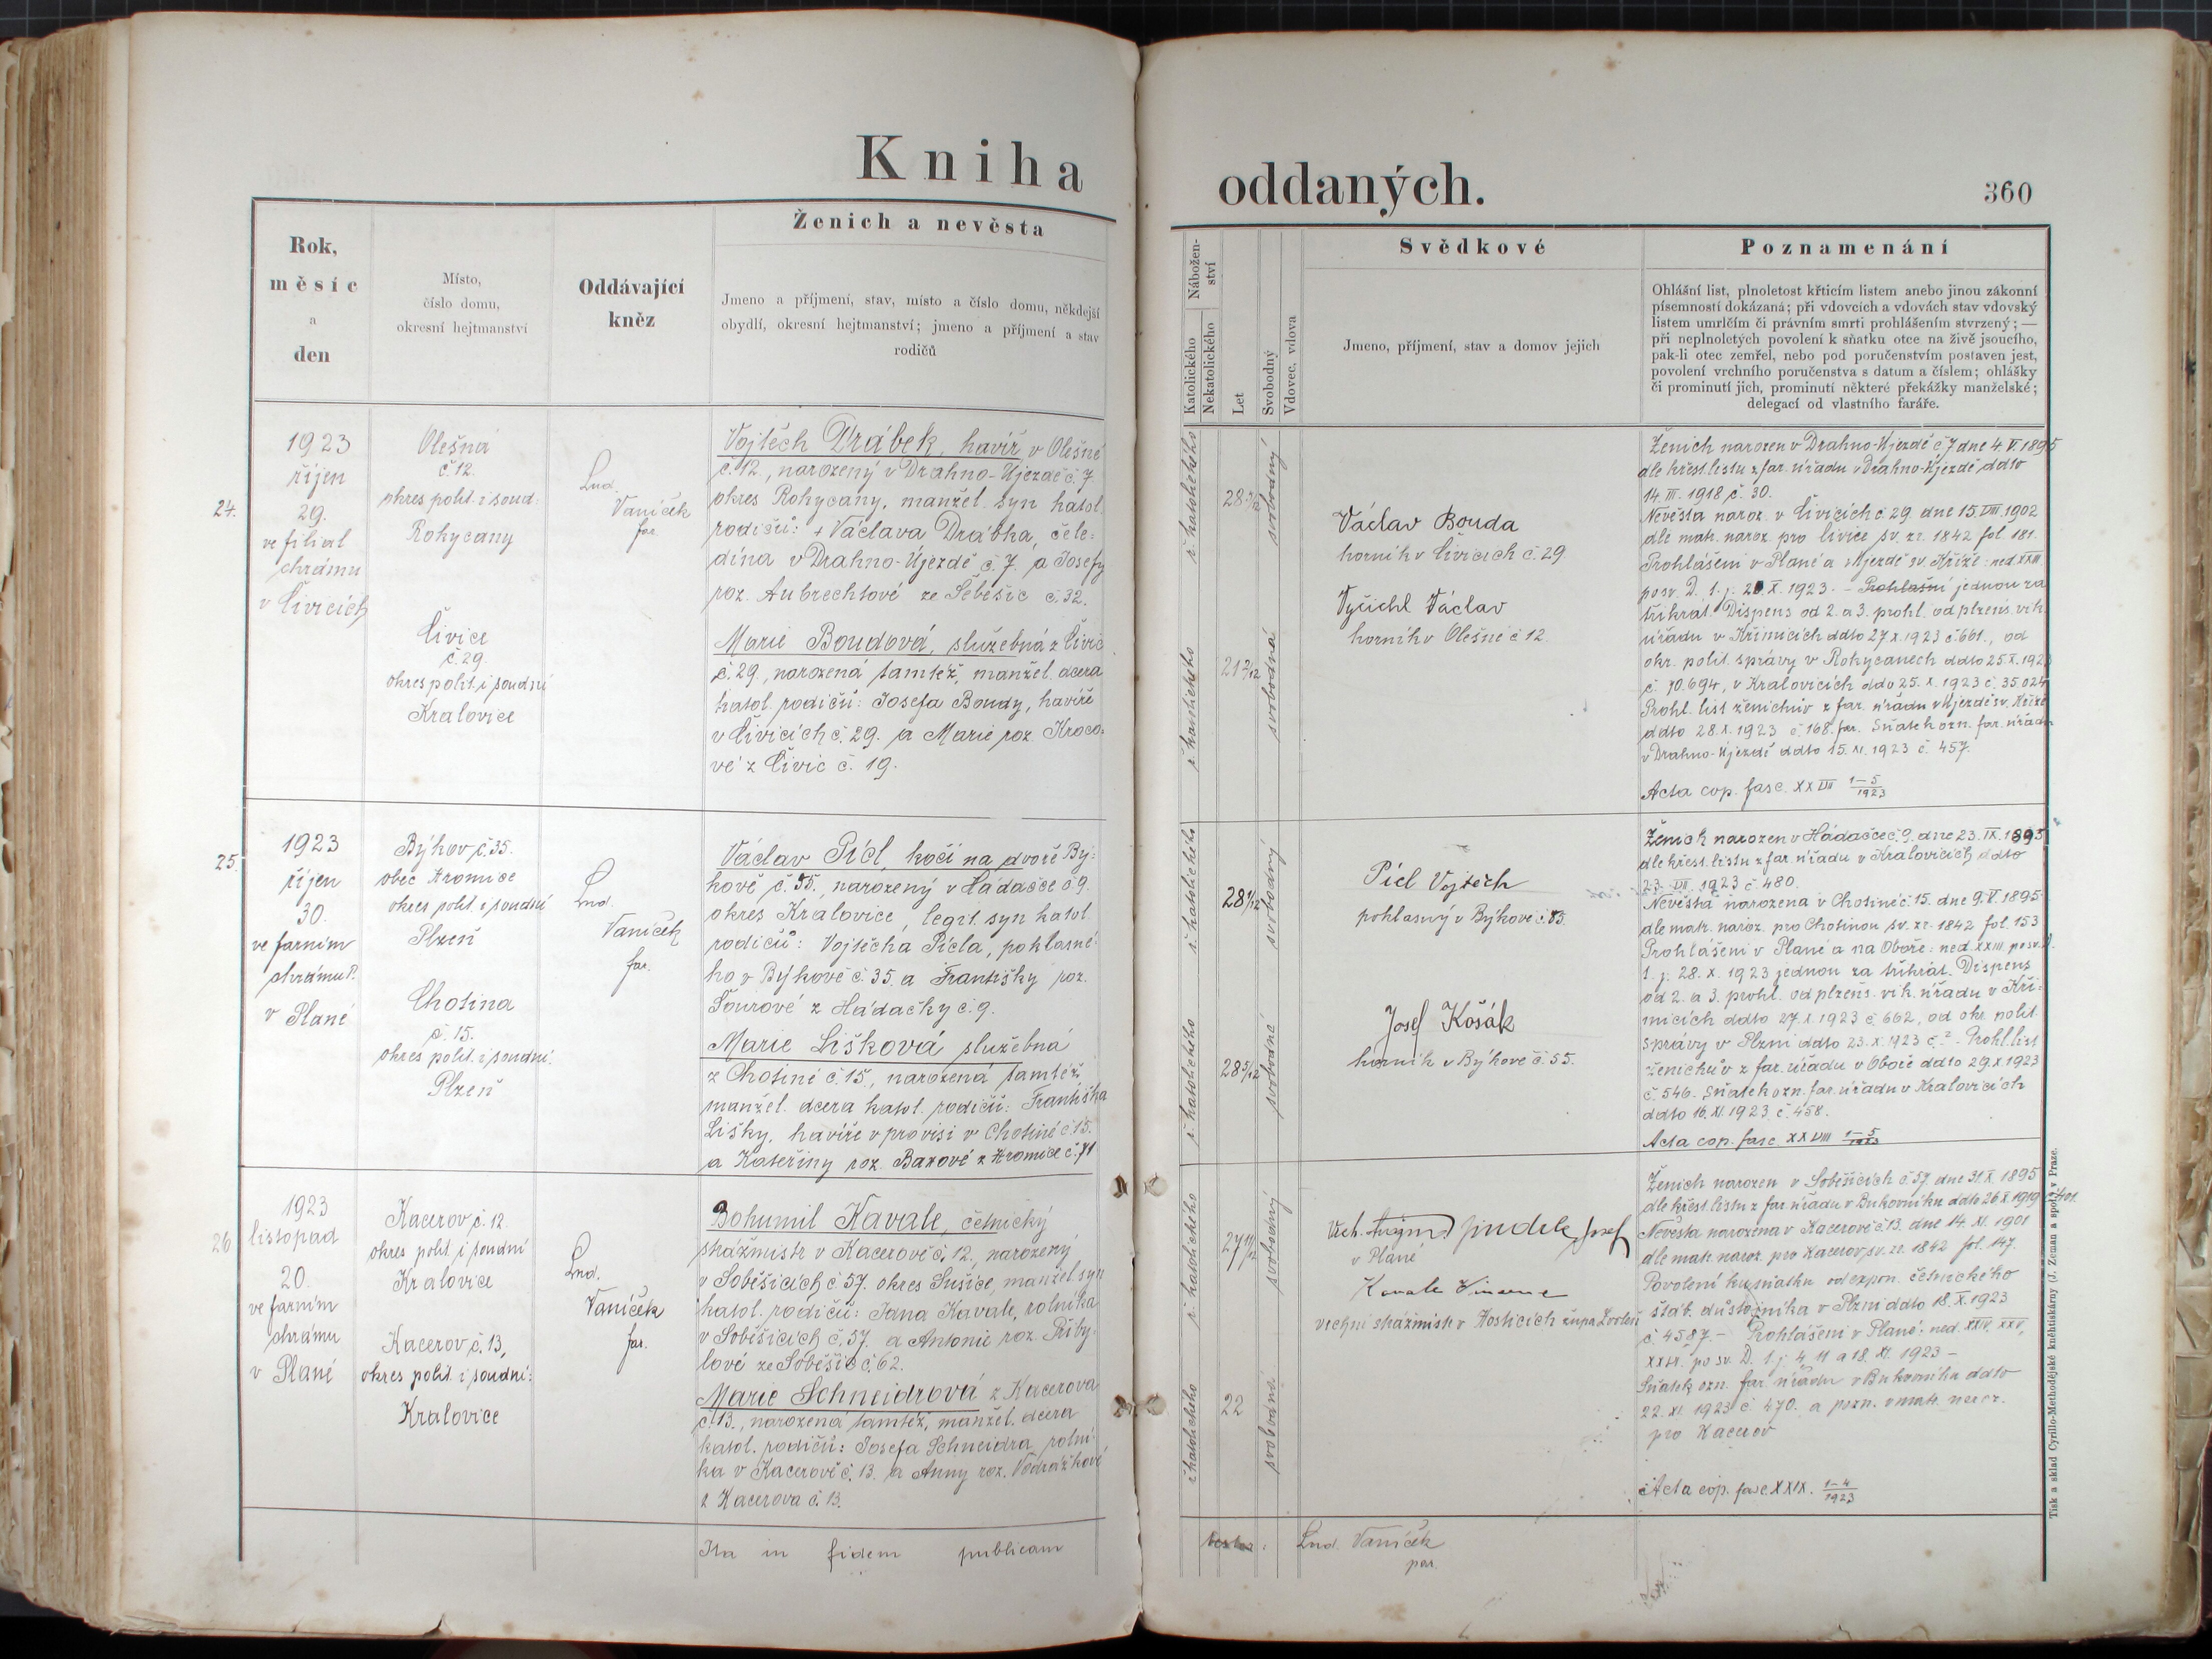 Kniha oddaných.
360
Rok,
měsíc
a
den
Místo,
číslo domu,
okresní hejtmanství
Oddávající
kněz
Ženich a nevěsta
Jmeno a příjmení, stav, místo a číslo domu, někdejší
obydlí, okresní hejtmanství; jmeno a příjmení a stav
rodičů
Nábožen-
ství
Katolického
Nekatolického
Let
Svobodný
Vdovec, vdova
Svědkové
Jmeno, příjmení, stav a domov jejich
Poznamenání
Ohlášní list, plnoletost křticím listem anebo jinou zákonní
písemností dokázaná; při vdovcích a vdovách stav vdovský
listem umrlčím či právním smrti prohlášením stvrzený; —
při neplnoletých povolení k sňatku otce na živě jsoucího,
pak-li otec zemřel, nebo pod poručenstvím postaven jest,
povolení vrchního poručenstva s datum a číslem; ohlášky
či prominutí jich, prominutí některé překážky manželské;
delegací od vlastního faráře.
24.
1923
říjen
29.
ve filial
chrámu
v Čivicích
Olešná
č 12.
okres polit. i soud:
Rokycany
Čivice
č. 29.
okres polit. i soudní
Kralovice
Lud.
Vaníček
far.
Vojtěch Drábek, havíř v Olešné
č. 12, narozený v Drahno-Újezdě č. 7
okres Rokycany, manžel. syn katol.
rodičů: + Václava Drábka, čele-
dína v Drahno-Újezdě č. 7 a Josefy
roz. Aubrechtové ze Šebešic č. 32.
Marie Boudová, služebná z Čivic
č. 29, narozená tamtéž, manžel. dcera
katol. rodičů: Josefa Boudy, havíře
v Čivicích č. 29. a Marie roz. Kroco-
vé z Čivic č. 19.
ř. katolického
28 5/12
svobodný
ř. katolického
21 2/12
svobodná
Václav Bouda
horník v Čivicích č. 29
Vyčichl Václav
horník v Olešné č 12
Ženich narozen v Drahno-Újezdě č 7 dne 4. V. 1895
dle křest. listu z far. úřadu v Drahno-Újezdě ddto
14. III. 1918 č. 30.
Nevěsta naroz. v Čivicích č. 29. dne 15. VIII. 1902
dle matr. naroz. pro Čivice sv. zr. 1842 fol. 181.
Prohlášeni v Plané a Újezdě sv. Kříže: ned. XXIII
po sv. D. t. j. 28 X. 1923. - Prohlášní jednou za
třikrát. Dispens od 2. a 3. prohl. od plzeňs. vik.
úřadu v Křimicích ddto 27 X. 1923 č. 661., od
okr. polit. správy v Rokycanech ddto 25. X. 1923
č. 70.694, v Kralovicích ddo 25. X. 1923 č. 35.024
Prohl. list ženichův z far. úřadu v Újezdě sv. Kříže
ddto 28. X. 1923 č. 168. far. Sňatek ozn. far. úřadu
v Drahno-Újezdě ddto 15. XI. 1923 č. 457.
Acta cop. fasc. XXVII 1-5/1923
25.
1923
říjen
30.
ve farním
chrámu P.
v Plané
Býkov č. 35.
obec Hromice
okres polit. i soudní
Plzeň
Chotina
č. 15.
okres polit. i soudní.
Plzeň
Lud.
Vaníček
far.
Václav Pícl, kočí na dvoře Bý-
kově č. 35. narozený v Hádačce č 9.
okres Kralovice, legit. syn katol.
rodičů: Vojtěcha Pícla, poklasné-
ho v Býkově č. 35. a Františky roz.
Šourové z Hádačky č. 9.
Marie Lišková služebná
z Chotiné č. 15., narozená tamtéž
manžel. dcera katol. rodičů: Františka
Lišky, havíře v provisi v Chotiné č 15.
a Kateřiny roz. Baxové z Hromice č. 71
ř. katolického
28 1/12
svobodný
ř. katolického
28 5/12
svobodná
Pícl Vojtěch
poklasný v Býkově č. 35.
Josef Košák
horník v Býkově č. 55.
Ženich narozen v Hádačce č. 9. dne 23. IX. 1895
dle křest. listu z far. úřadu v Kralovicích ddto
23. VII. 1923 č. 480.
Nevěsta narozena v Chotiné č. 15. dne 9. V. 1895.
dle matr. naroz. pro Chotinou sv. zr. 1842 fol. 153
Prohlášeni v Plané a na Oboře: ned. XXIII po sv. D.
t. j. 28. X. 1923 jednou za třikrát. Dispens
od 2. a 3. prohl. od plzeňs. vik. úřadu v Kři-
micích ddto 27. X. 1923 č. 662, od okr. polit.
správy v Plzni ddto 23. X. 1923 č. ? - Prohl. list
ženichův z far. úřadu v Oboře ddto 29. X. 1923
č. 546. Sňatek ozn. far. úřadu v Kralovicích
ddto 16. XI. 1923 č. 458.
Acta cop. fasc XXVIII 1-5/1923
26
1923
listopad
20.
ve farním
chrámu
v Plané
Kacerov č. 12.
okres polit. i soudní
Kralovice
Kacerov č. 13,
okres polit. i soudní:
Kralovice
Lud.
Vaníček
far.
Bohumil Kavale, četnický
strážmistr v Kacerově č. 12, narozený
v Soběšicích č 57. okres Sušice, manžel. syn
katol. rodičů: Jana Kavale, rolníka
v Soběšicích č. 57. a Antonie roz. Přiby-
lové ze Soběšic č. 62.
Marie Schneidrová z Kacerova
č. 13., narozená tamtéž, manžel. dcera
katol. rodičů: Josefa Schneidra, rolní-
ka v Kacerově č. 13. a Anny roz. Vodrážkové
z Kacerova č. 13.
ř. katolického
svobodný
ř. katolického
22
svobodná
Jindek Josef
v Plané
Kavale
vrchní strážmistr v Hosticích župa Zvoleň
Ženich narozen v Soběšicích č. 57. dne 31. X. 1895
dle křest. listu z far. úřadu v Bukovníku ddto 26 X. 1919
Nevěsta narozena v Kacerově č. 13. dne 14. XI. 1901
dle matr. naroz. pro Kacerov sv. zr. 1842 fol. 147.
Povolení ku sňatku od expon. četnického
štáb. důstojníka v Plzni ddto 18. X. 1923
č. 4587. - Prohlášeni v Plané: ned. XXIV, XXV,
XXVI. po sv. D. t. j. 4, 11 a 18. XI. 1923 -
Sňatek ozn. far. úřadu v Bukovníku ddto
22. XI. 1923 č. 470. a pozn. v matr. naroz.
pro Kacerov
Acta cop. fasc XXIX. 1-4/1923
Ita in fidem publicam
Lud. Vaníček
par.
Tisk a sklad Cyrillo-Methodějské knihtiskárny (J. Zeman a spol.) v Praze.